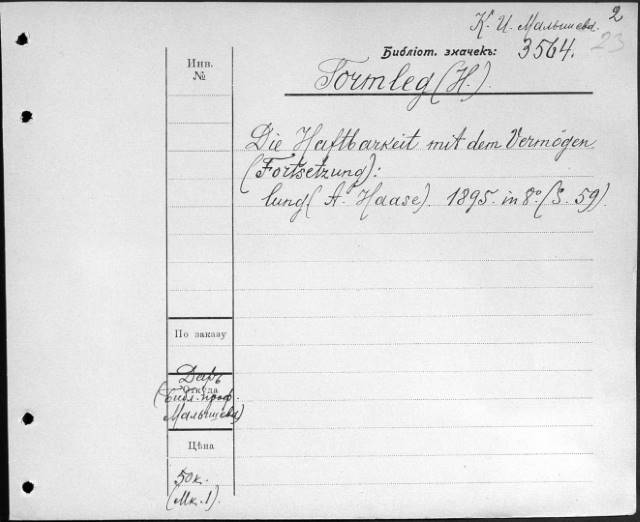 К. И. Малышева. 2
Библіот. значекъ: 3564. 23
Инв.
№
Formleg (H.).
Die Haftbarkeit mit dem Vermögen
(Fortsetzung):
lung (A. Haase). 1895. in 8° (S. 59).
По заказу
Даръ
Откуда
(библ. проф.
Малышева)
Цѣна
50 к.
(Мк. 1).